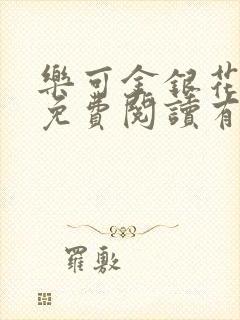 樂可金銀花
免費閱讀有
羅敷